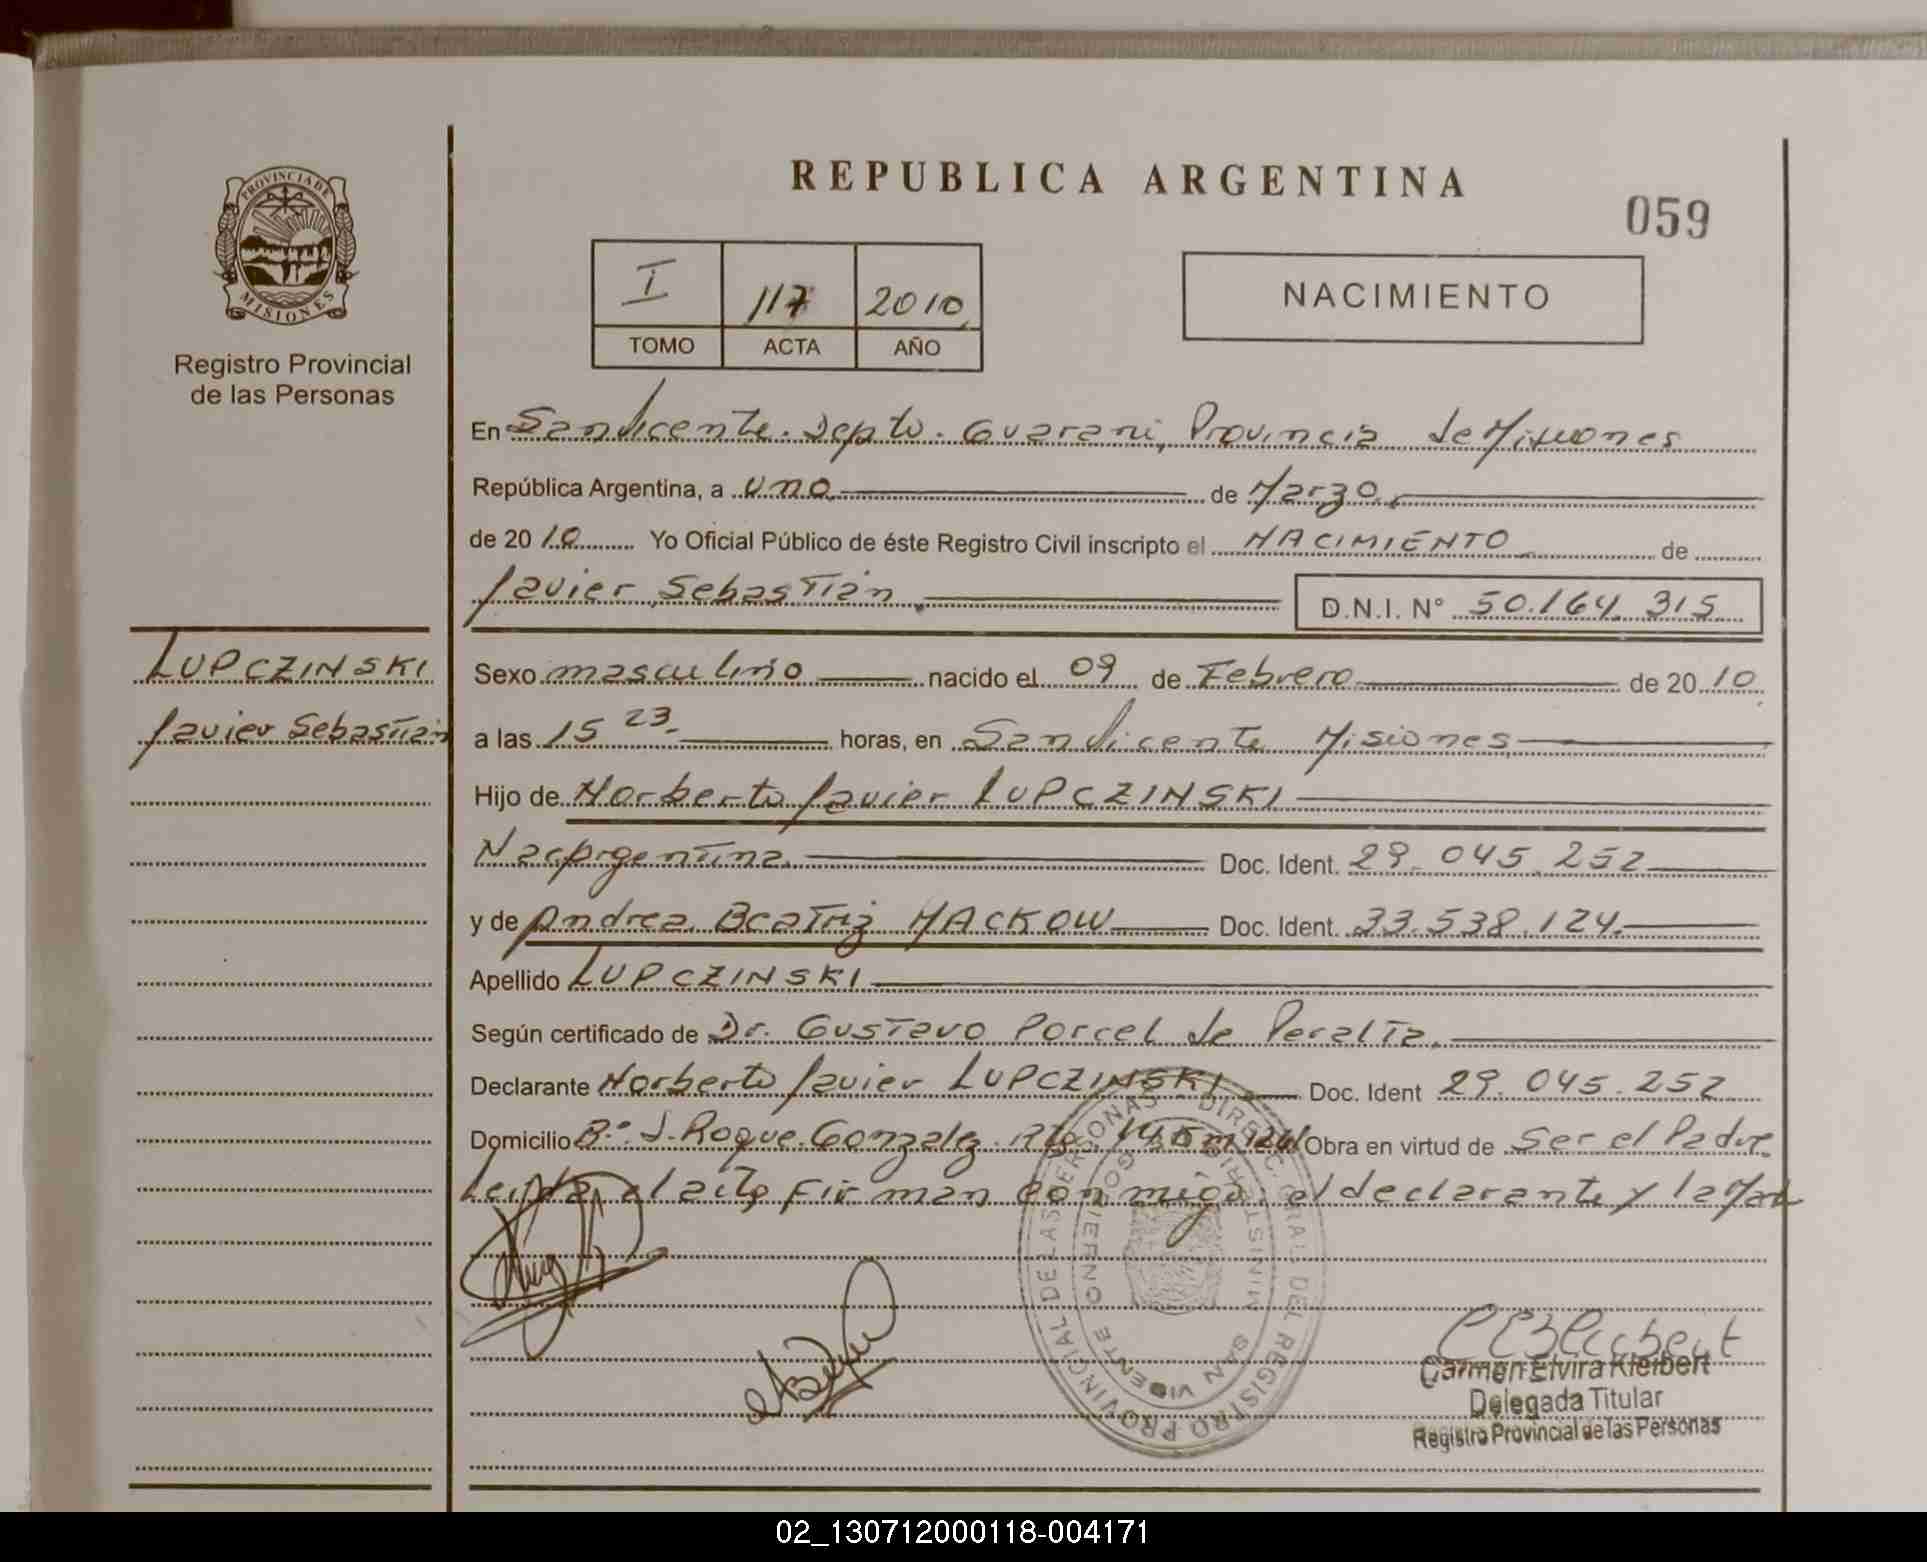 REPUBLICA ARGENTINA
059
PROVINCIA DE MISIONES
Registro Provincial
de las Personas
I 117 2010
TOMO ACTA AÑO
NACIMIENTO
En San Vicente. Depto. Guarani, Provincia de Misiones
República Argentina, a uno de Marzo
de 2010 Yo Oficial Público de éste Registro Civil inscripto el NACIMIENTO de
Javier Sebastián D.N.I. N° 50.164.315
LUPCZINSKI
Javier Sebastián
Sexo masculino nacido el 09 de Febrero de 2010
a las 15 23 horas, en San Vicente Misiones
Hijo de Norberto Javier LUPCZINSKI
Nac. Argentina Doc. Ident. 29.045.252
y de Andrea Beatriz MACKOW Doc. Ident. 33.538.124
Apellido LUPCZINSKI
Según certificado de Dr. Gustavo Porcel de Peralta
Declarante Norberto Javier LUPCZINSKI Doc. Ident 29.045.252
Domicilio B°. S. Roque Gonzalez Obra en virtud de Ser el Padre
Leida el acta firman conmigo el declarante y la
DIREC. GRAL. DEL REGISTRO PROVINCIAL DE LAS PERSONAS
SAN VICENTE
Carmen Elvira Kleibert
Delegada Titular
Registro Provincial de las Personas
02_130712000118-004171